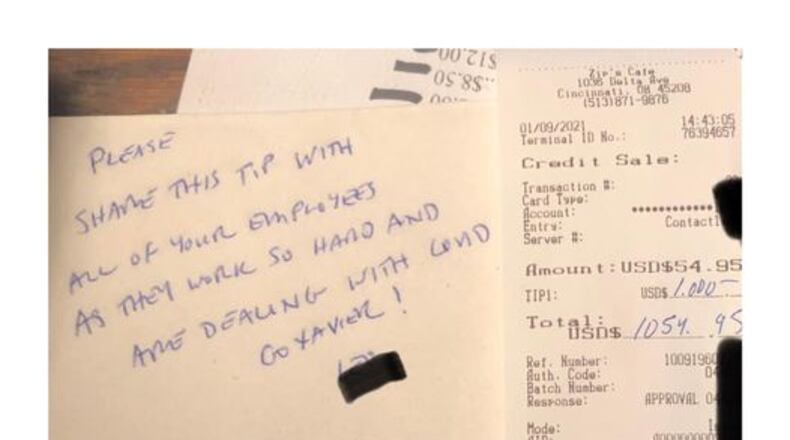 $12.00
..$8.50
PLEASE
SHARE THIS TIP WITH
ALL OF YOUR EMPLOYEES
AS THEY WORK SO HARD AND
ARE DEALING WITH COVID
GO XAVIER!
Zip's Cafe
1036 Delta Ave
Cincinnati, OH 45208
(513)871-9876
01/09/2021 14:43:05
Terminal ID No.: 76394657
Credit Sale:
Transaction #:
Card Type:
Account: ************
Entry: Contactl
Server #:
Amount: USD$54.95
TIP1: USD$ 1,000-
Total:
USD$ 1054.95
Ref. Number: 10091960
Auth. Code: 04
Batch Number:
Response: APPROVAL 04
Mode: